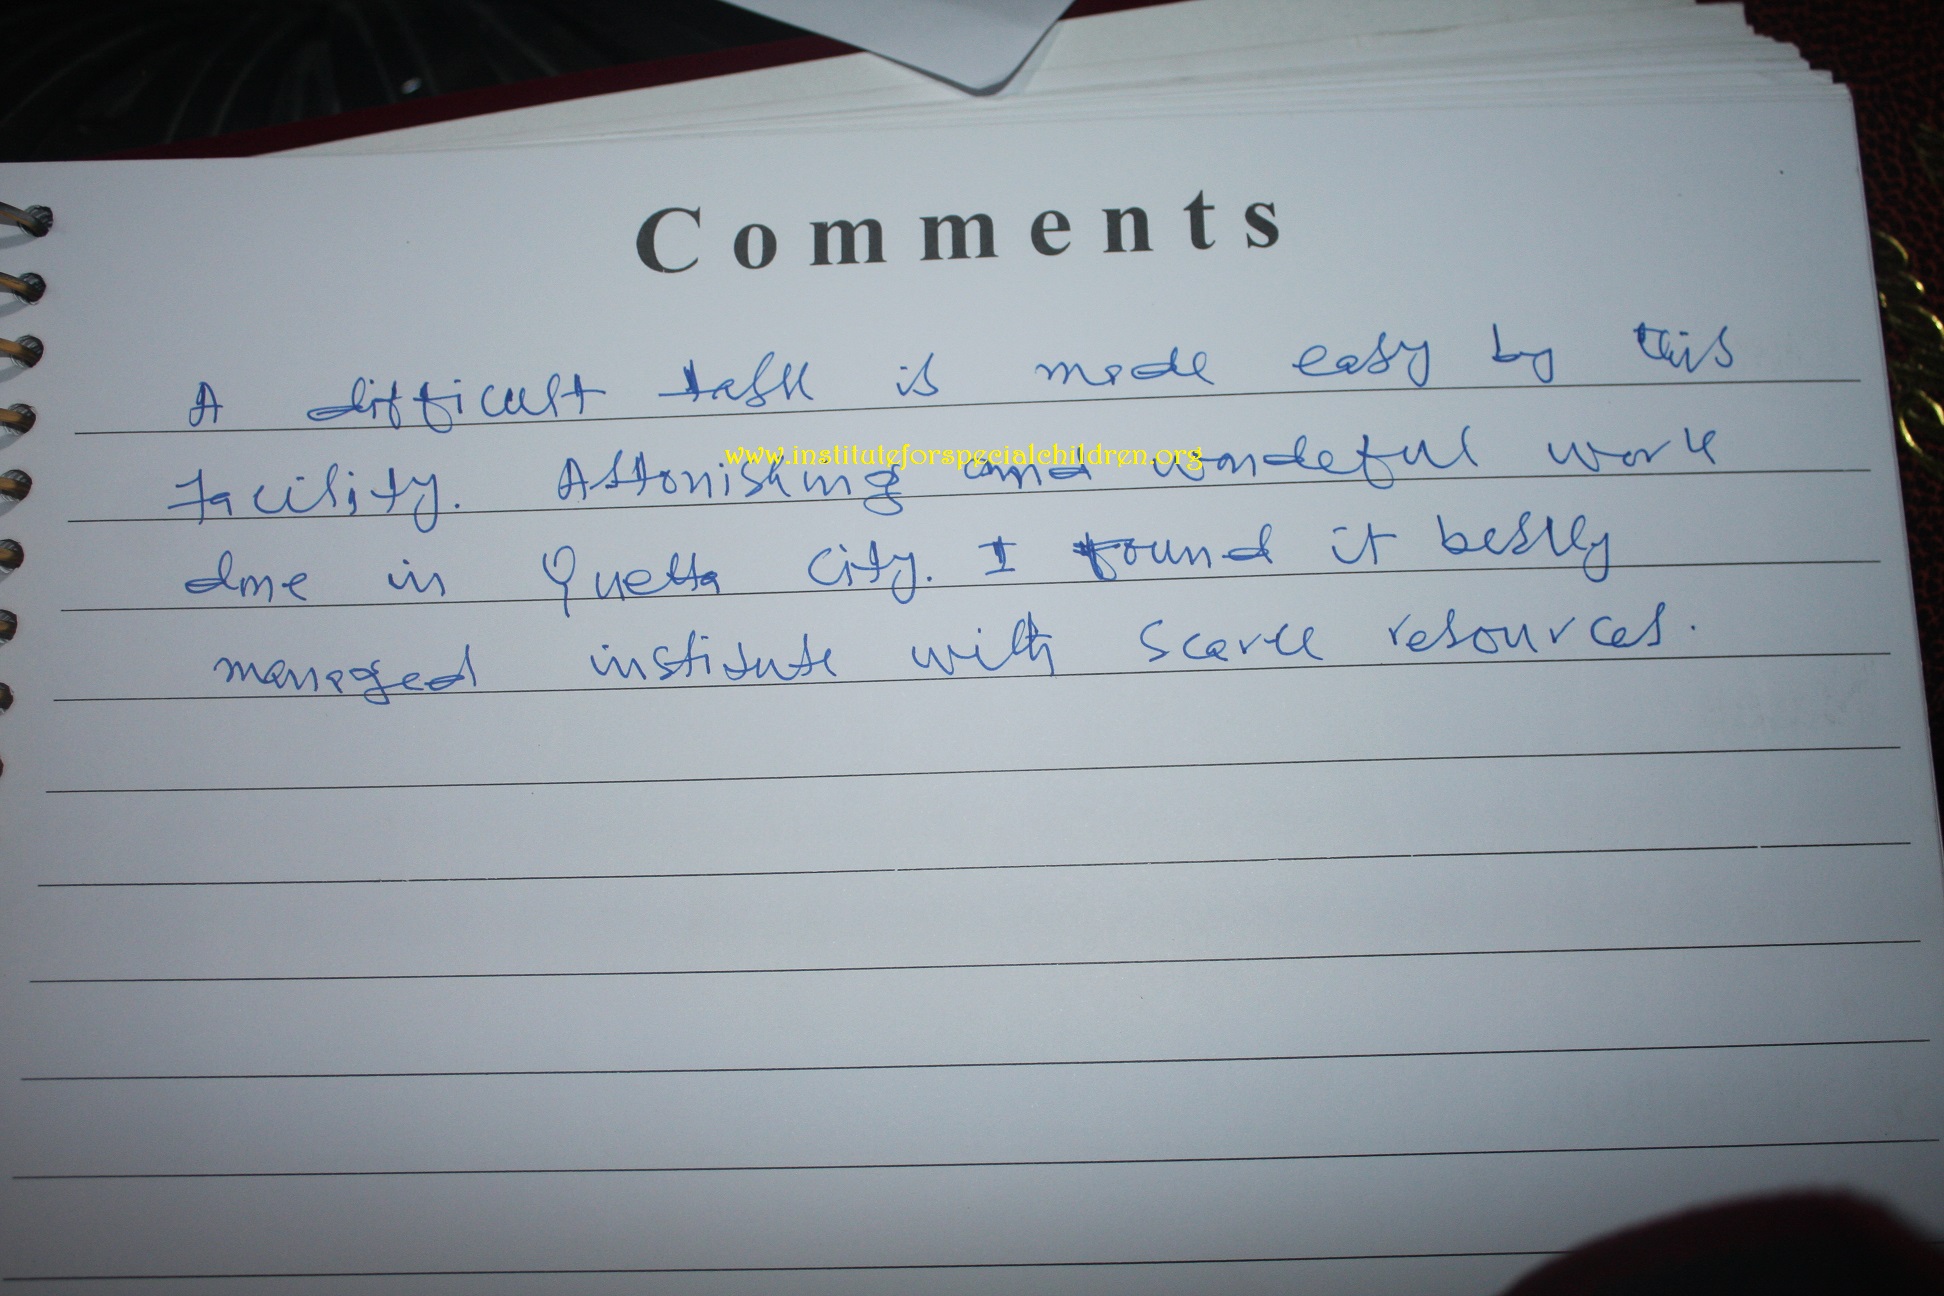 Comments
A difficult task is made easy by this
facility. Astonishing and wondeful work
www.instituteforspecialchildren.org
done in Quetta City. I found it bestly
managed institute with scarce resources.